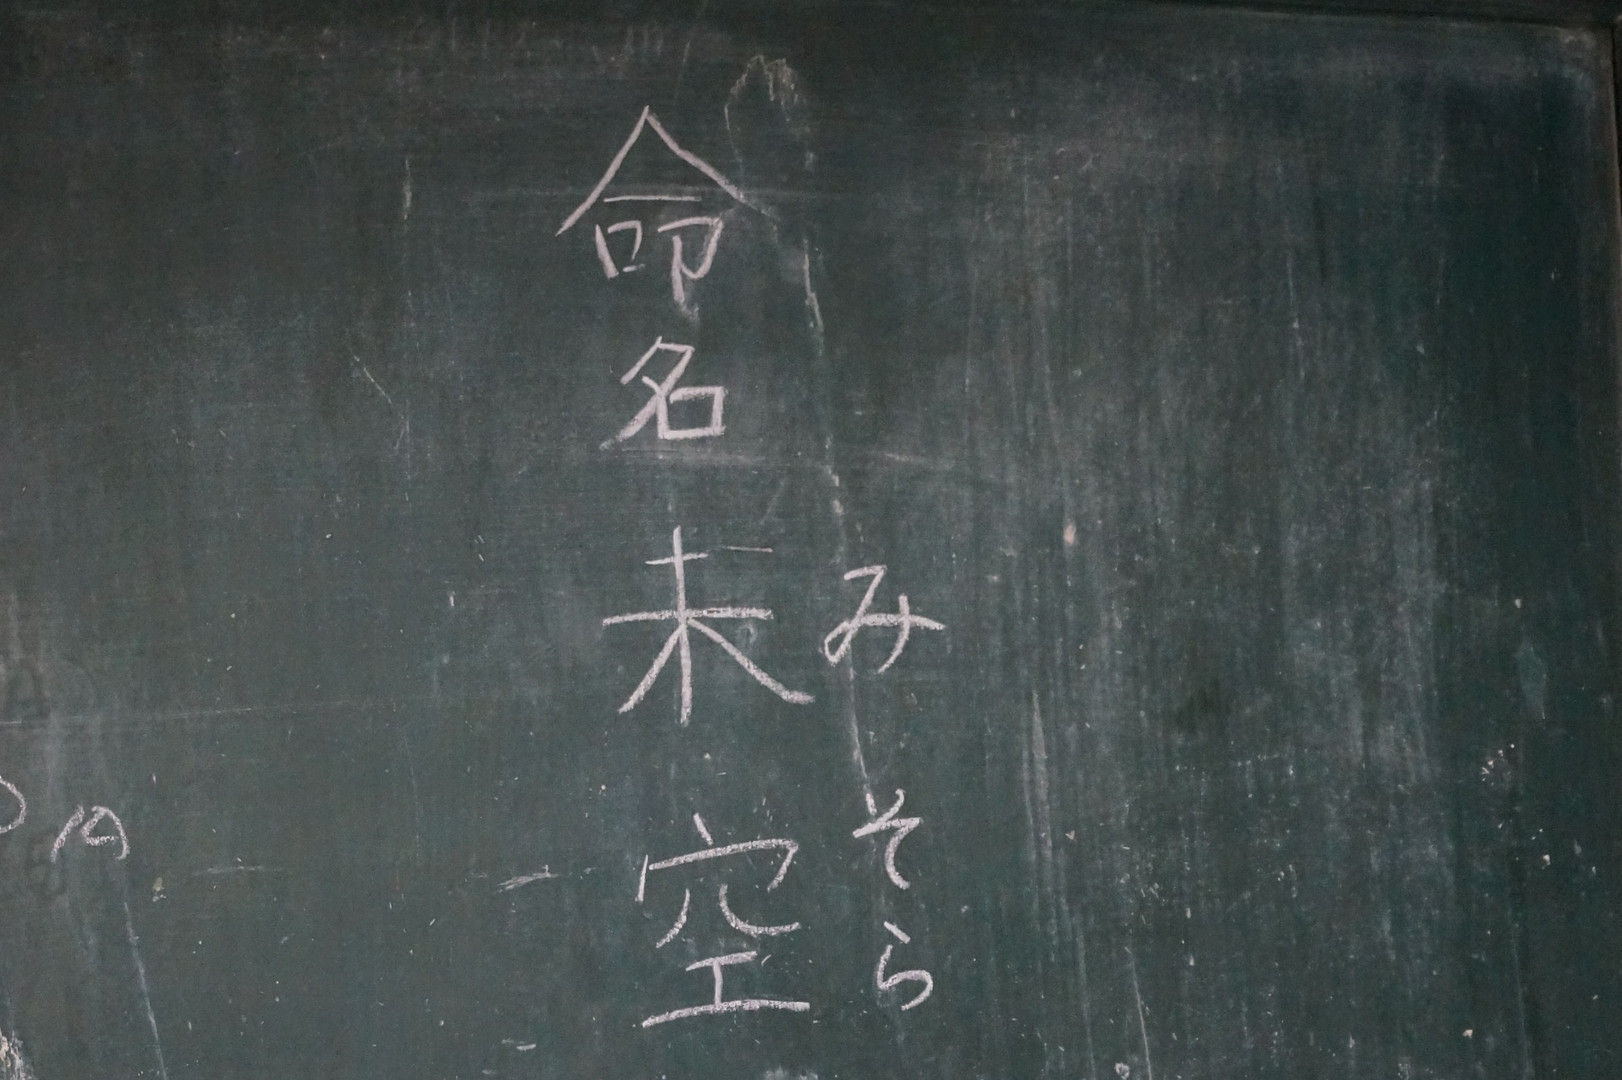 命名
未空
みそら